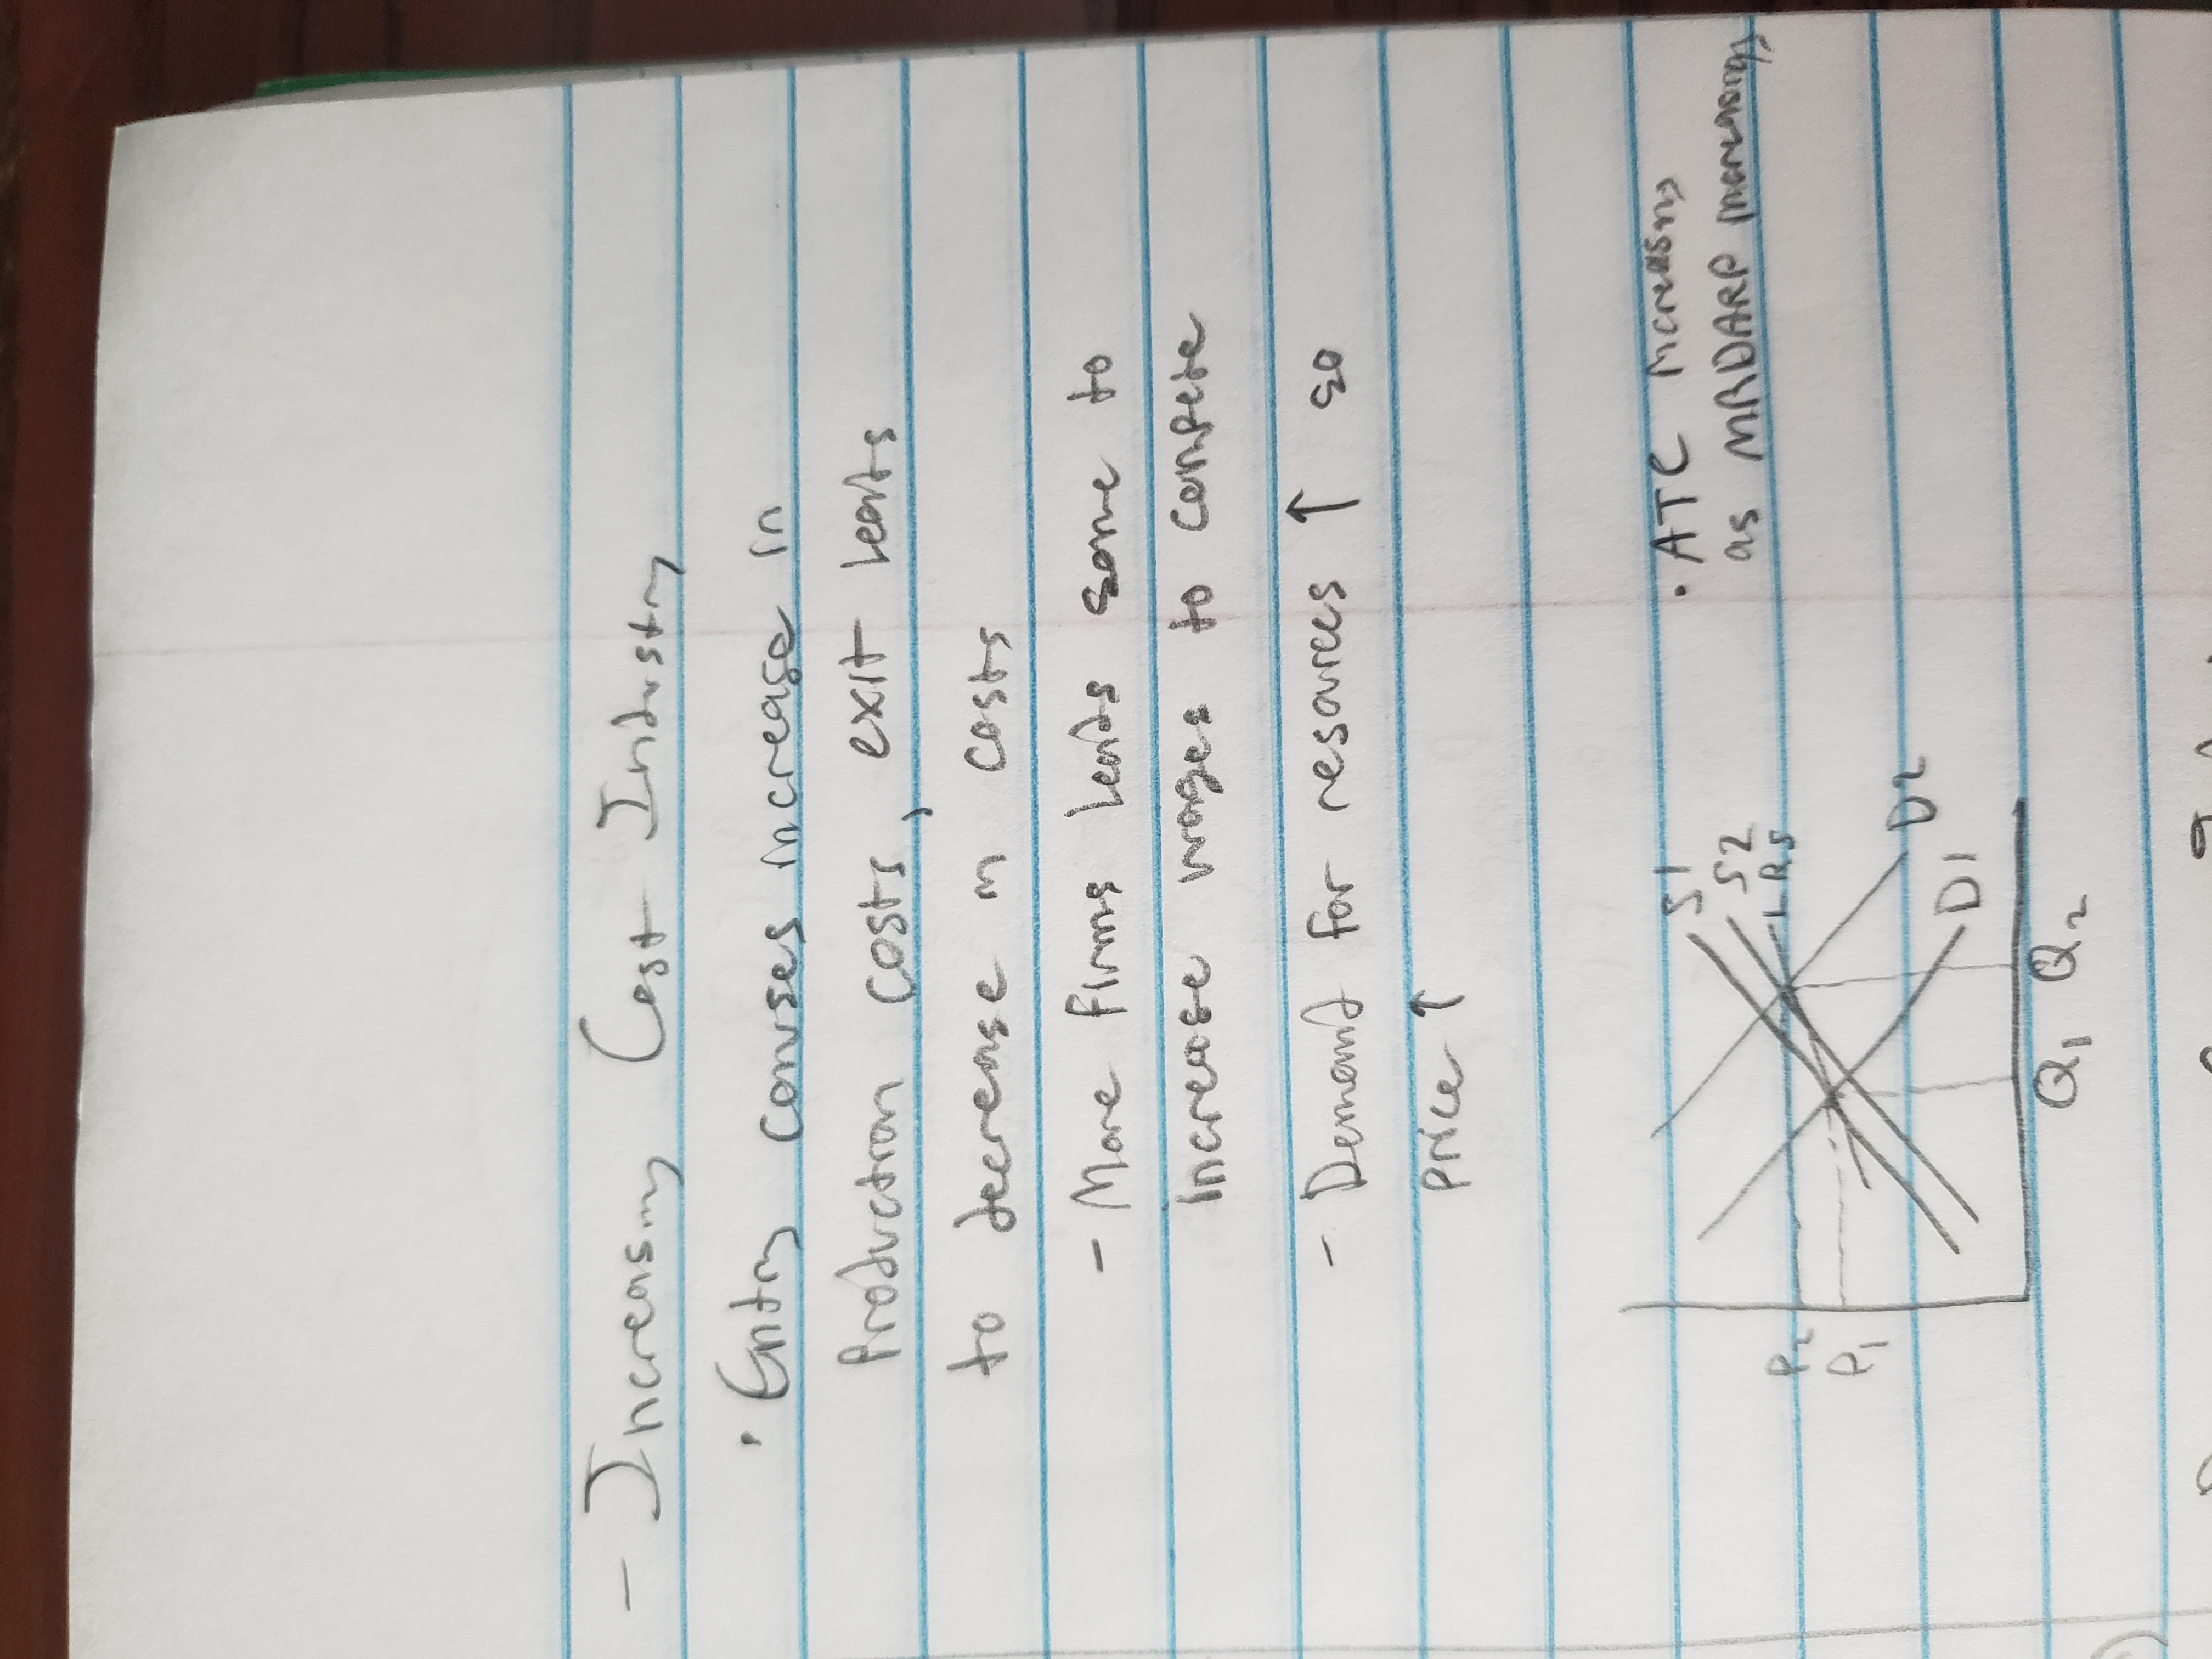 - Increasing Cost Industry
• Entry causes increase in
Production costs, exit leads
to decrease in costs
- More firms leads some to
increase wages to compete
- Demand for resources ↑ so
price ↑
• ATC increasing
as MRDARP increasing
S1
S2
LRS
D2
D1
P2
P1
Q1 Q2